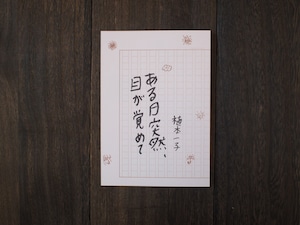 ある日突然、
目が覚めて
植本一子